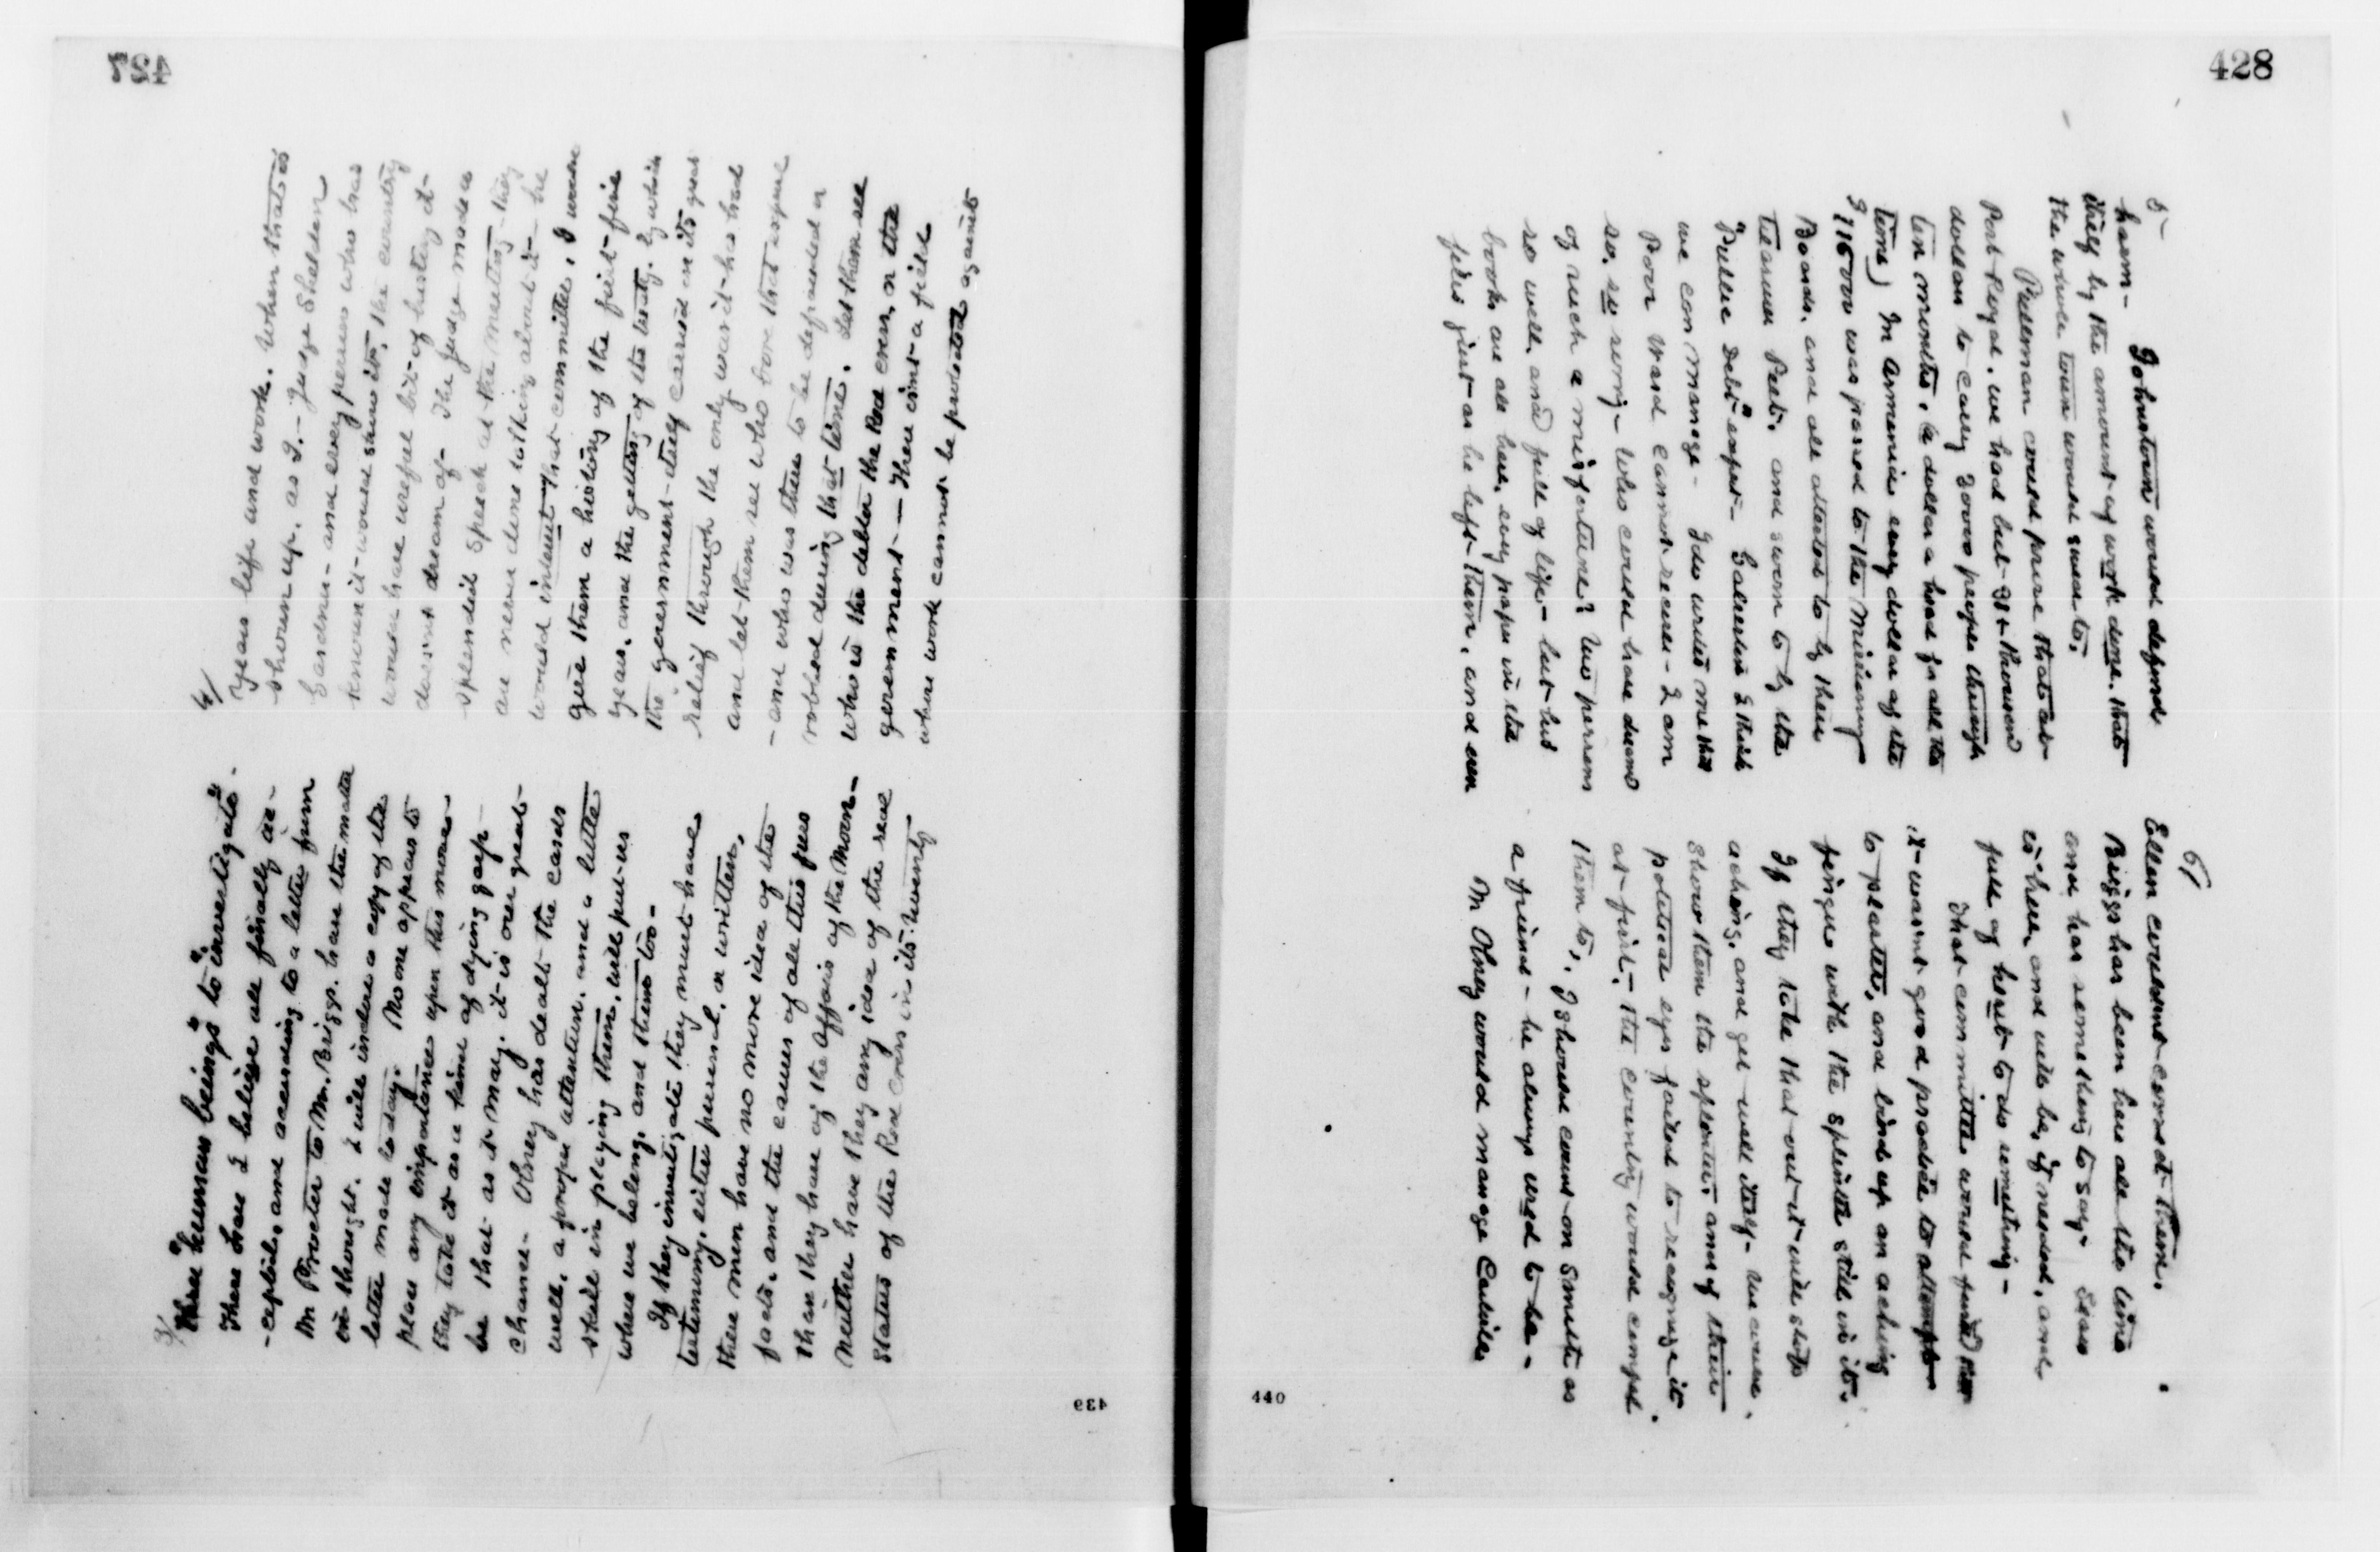 427
3/
"three human beings" to "investigate".
These have I believe all finally ac-
-cepted, and according to a letter from
Mr Procter to Mr. Briggs. have the matter
in thought. I will inclose a copy of the
letter made today. No one appears to
place any importance upon this move-
they take it as a kind of dying gasp-
be that as it may. it is our great-
chance- Olney has dealt the cards
well, a proper attention, and a little
skill in playing them, will put us
where we belong, and them too-
If they investigate they must have
testimony, either personal, or written,
these men have no more idea of the
facts, and the causes of all this fuss
than they have of the affairs of the Moon-
Neither have they any idea of the real
status of the Red Cross in its twenty
4/
years life and work. When that is
shown up. as I.- Judge Sheldon
Gardner- and every person who has
known it- would show it, the country
would have useful bit of history it
doesnt dream of- The Judge made a
splendid speech at the meeting- they
are never done talking about it- he
would interest that committee, I would
give them a history of the first five
years, and the getting of the treaty. by which
the government itself carried on its great
relief through the only ward it has had
and let them see who bore that expense
-and who was there to be defrauded or
robbed during that time. Let them see
who is the debtor the Red Cross, or the
government- There aint a field
where work cannot be protected against
428
5
harm- Johnstown would defend
itself by the amount of work done. that
the whole town would swear to.
Pullman could prove that at
Port Royal, we had but 31+ thousand
dollars to carry 30000 people through
ten months, (a dollar a head for all the
time) In Armenia every dollar of the
$116000 was passed to the Missionary
Boards, and all attested to by their
Treasurer Peet. and sworn to by the
"Public Debt" expert- Galveston I think
we can manage- I do wish me this
Poor Ward cannot secure- I am
so, so sorry- Who could have dreamed
of such a misfortune? Two persons
so well, and full of life- but his
books are all here, every paper in the
files just as he left them, and even
6/
Ellen couldnt correct them.
Briggs has been here all the time
and has something to say- Sears
is here, and will be, if needed, and
full of heart to do something-
That committee would find that
it wasnt good practice to attempt
to plaster, and bind up an aching
finger with the splinter still in it.
If they take that out it will stop
aching, and get well itself- we could
show them the splinter and if their
political eyes failed to recognize it
at first- the country would compel
them to,. I should count on Smith as
a friend- he always used to be-
Mr Olney would manage Cadwiles
439
440